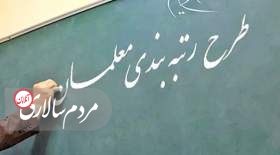 طرح رتبه بندی معلمان
مردم‌سالاری
آنلاین